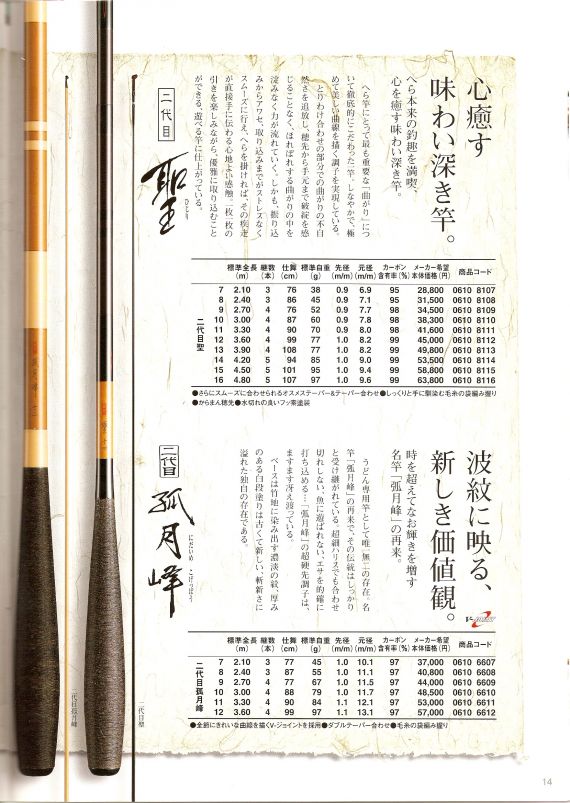 心癒す
味わい深き竿。
へら本来の釣趣を満喫、
心を癒す味わい深き竿。
へら竿にとって最も重要な「曲がり」につ
いて徹底的にこだわった一竿。しなやかで、極
めて美しい曲線を描く調子を実現している。
とりわけ合わせの部分での曲がりの不自
然さを追放し、穂先から手元まで破綻を感
じることなく、ほれぼれする曲がりの中を
淀みなく力が流れていく。しかも、振り込
みからアワセ、取り込みまでがストレスなく
スムーズに行え、へらを掛ければ、その疾走
が直接手に伝わる心地よい感触。一枚一枚の
引きを楽しみながら、優雅に取り込むこと
ができる、遊べる竿に仕上がっている。
二代目
聖
ひじり
標準全長(m) 継数(本) 仕舞(cm) 標準自重(g) 先径(m/m) 元径(m/m) カーボン含有率(%) メーカー希望本体価格(円) 商品コード
二代目聖
7 2.10 3 76 38 0.9 6.9 95 28,800 0610 8107
8 2.40 3 86 45 0.9 7.1 95 31,500 0610 8108
9 2.70 4 76 52 0.9 7.7 98 34,500 0610 8109
10 3.00 4 87 60 0.9 7.8 98 38,300 0610 8110
11 3.30 4 90 70 0.9 8.0 98 41,600 0610 8111
12 3.60 4 99 77 1.0 8.2 99 45,000 0610 8112
13 3.90 4 108 77 1.0 8.2 99 49,800 0610 8113
14 4.20 5 94 85 1.0 9.0 99 53,500 0610 8114
15 4.50 5 101 95 1.0 9.4 99 58,800 0610 8115
16 4.80 5 107 97 1.0 9.6 99 63,800 0610 8116
●さらにスムーズに合わせられるオスメステーパー&テーパー合わせ●しっくりと手に馴染む毛糸の袋編み握り
●からまん穂先●水切れの良いフッ素塗装
波紋に映る、
新しき価値観。
時を超えてなお輝きを増す
名竿「弧月峰」の再来。
うどん専用竿として唯一無二の存在。名
竿「弧月峰」の再来で、その伝統はしっかり
と受け継がれている。超細ハリスでも合わせ
切れしない、魚に遊ばれない、エサを的確に
打ち込める…。「弧月峰」の超硬先調子は、
ますます冴え渡っている。
ベースは竹地に染み出す濃淡の紋、厚み
のある白段塗りは古くて新しい、斬新さに
溢れた独自の存在である。
二代目
弧月峰
にだいめ こげつほう
V-JOINT
標準全長(m) 継数(本) 仕舞(cm) 標準自重(g) 先径(m/m) 元径(m/m) カーボン含有率(%) メーカー希望本体価格(円) 商品コード
二代目弧月峰
7 2.10 3 77 45 1.0 10.1 97 37,000 0610 6607
8 2.40 3 87 55 1.0 11.1 97 40,800 0610 6608
9 2.70 4 77 67 1.0 11.5 97 44,000 0610 6609
10 3.00 4 88 79 1.0 11.7 97 48,500 0610 6610
11 3.30 4 90 84 1.1 12.1 97 53,000 0610 6611
12 3.60 4 99 97 1.1 13.1 97 57,000 0610 6612
●全節にきれいな曲線を描くV-ジョイントを採用●ダブルテーパー合わせ●毛糸の袋編み握り
二代目弧月峰
二代目聖
14